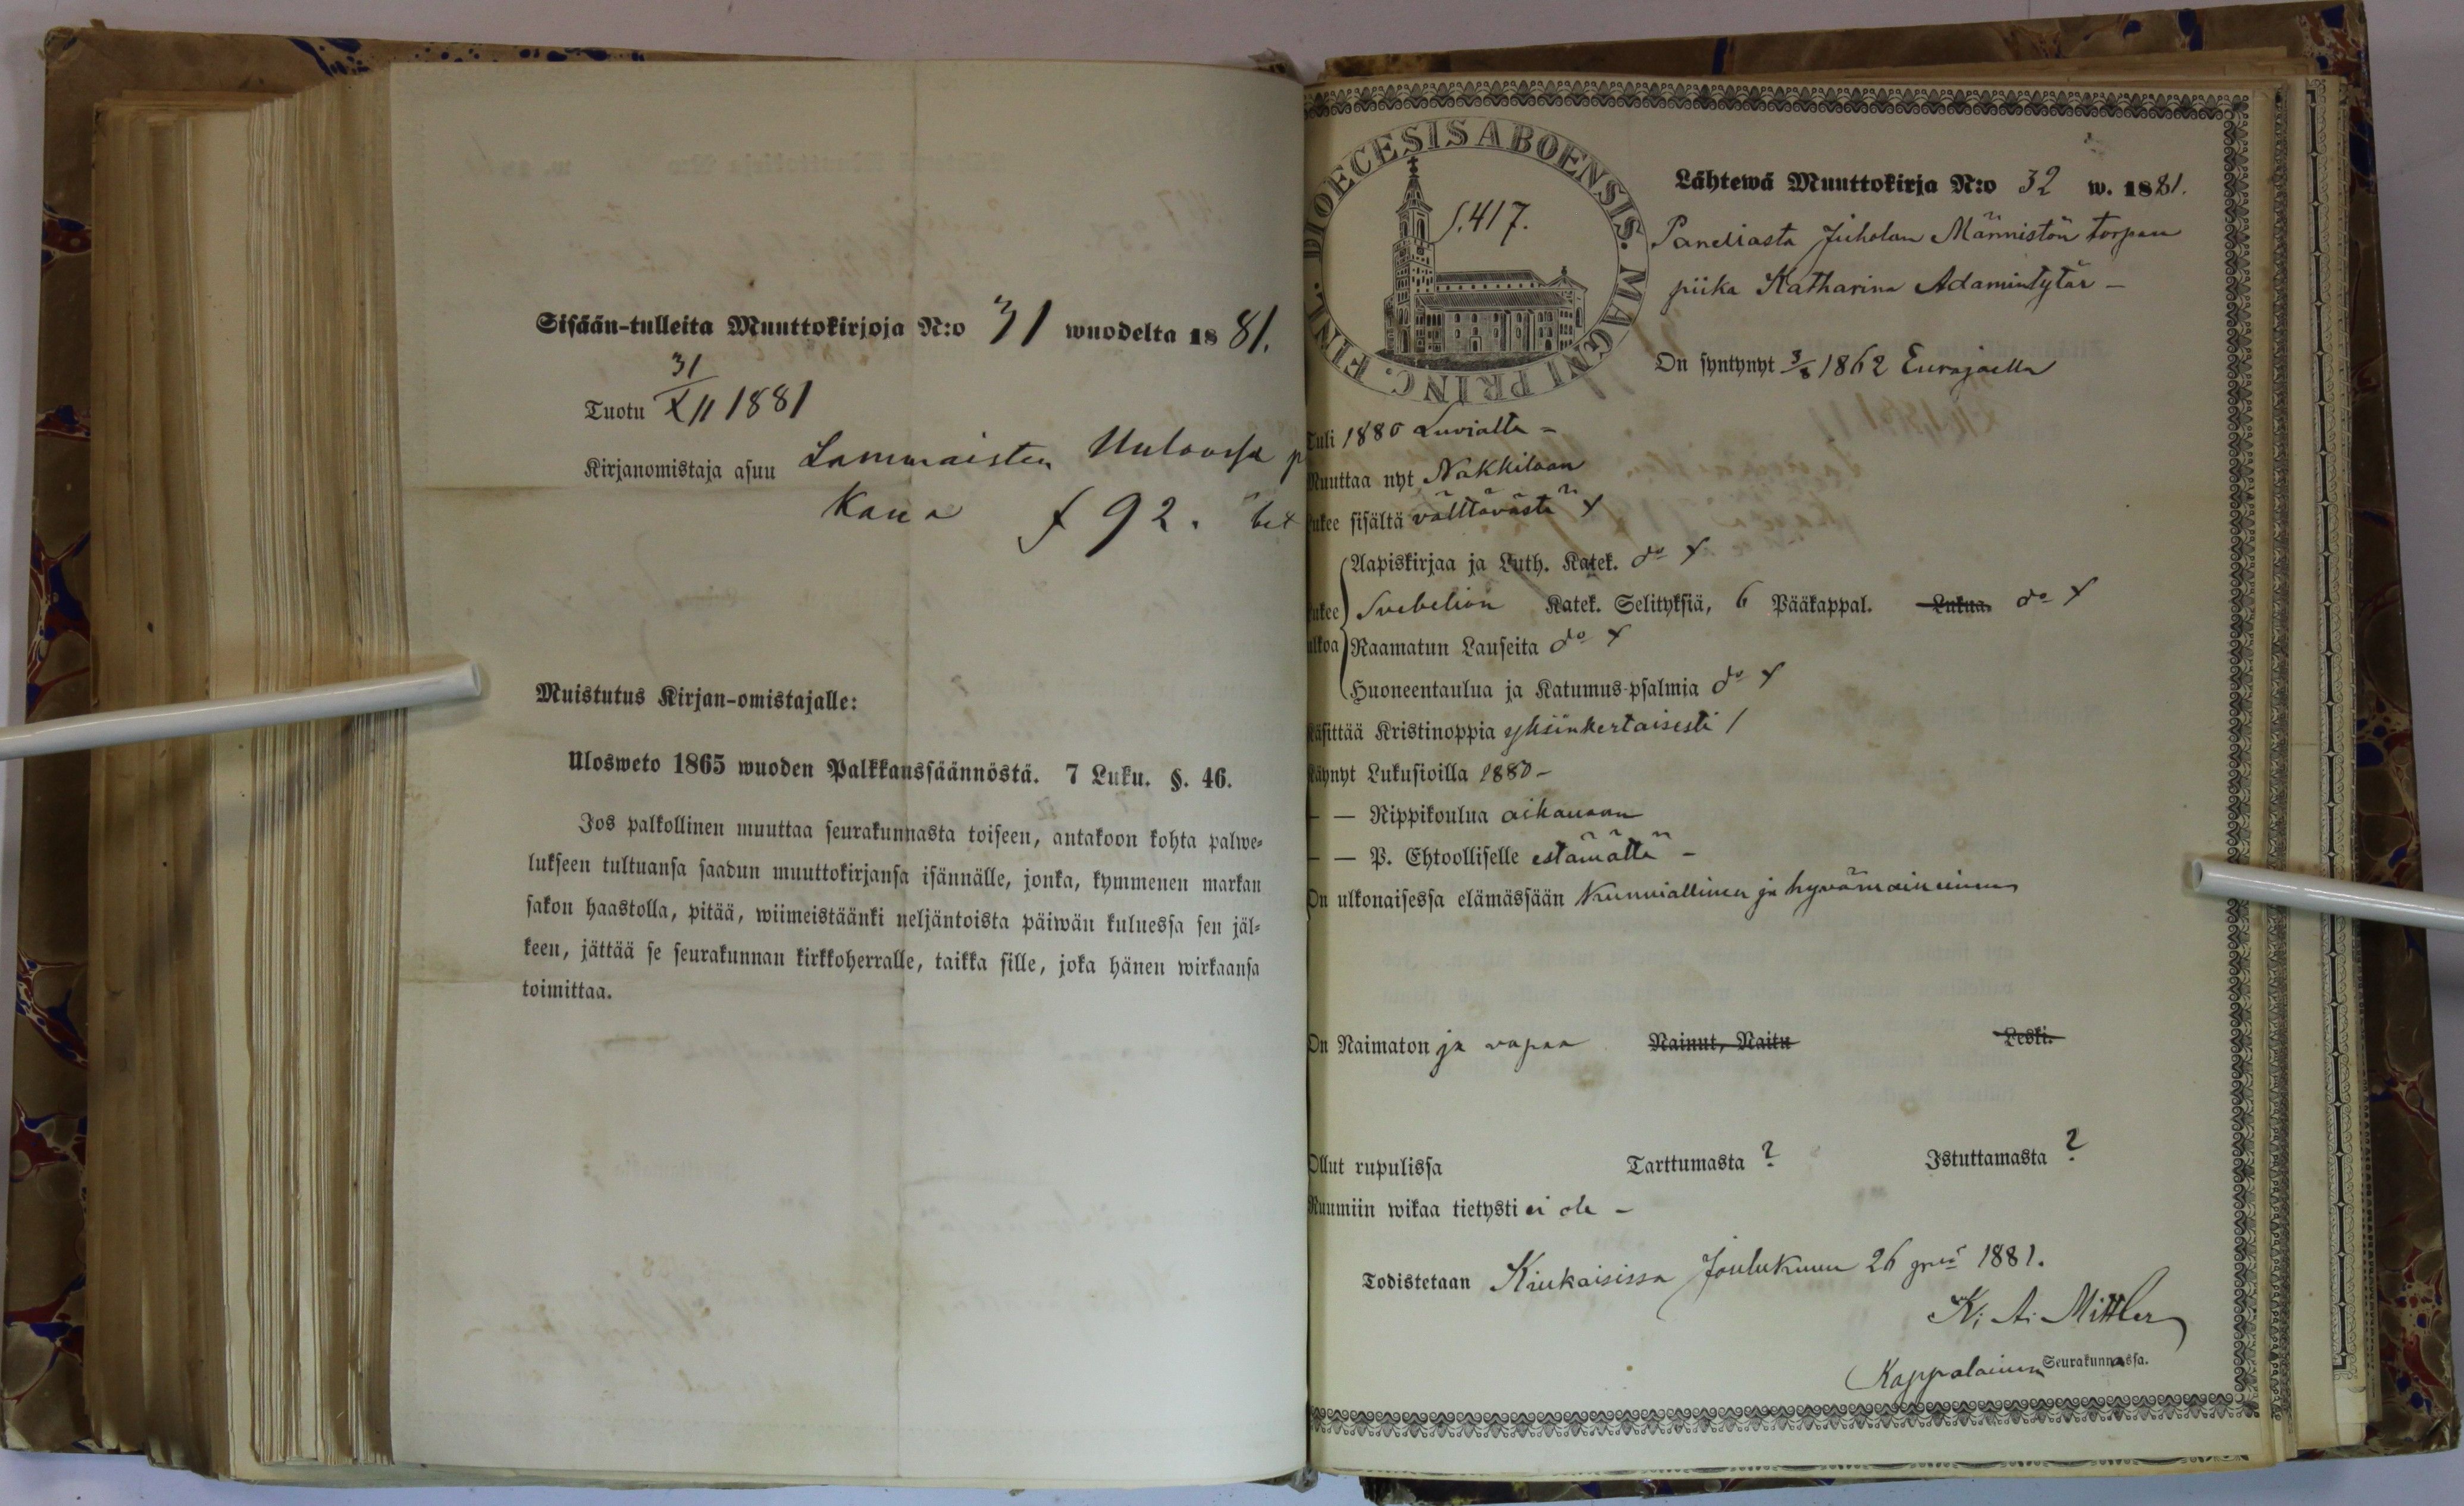 Sisään-tulleita Muuttokirjoja N:o 31 wuodelta 1881.
Tuotu 31/XII 1881
Kirjanomistaja asuu Lammaisten Uuloossa p
Kana f 92. bet
Muistutus Kirjan-omistajalle:
Ulosweto 1865 wuoden Palkkaussäännöstä. 7 Luku. §. 46.
Jos palkollinen muuttaa seurakunnasta toiseen, antakoon kohta palwe-
lukseen tultuansa saadun muuttokirjansa isännälle, jonka, kymmenen markan
sakon haastolla, pitää, wiimeistäänki neljäntoista päiwän kuluessa sen jäl-
keen, jättää se seurakunnan kirkkoherralle, taikka sille, joka hänen wirkaansa
toimittaa.
DIOECESIS ABOENSIS. MAGNI PRINC. FINL.
f. 417.
Lähtewä Muuttokirja N:o 32 w. 1881.
Paneliasta Juholan Männistön torpan
piika Katharina Adamintytär –
On syntynyt 3/8 1862 Eurajoella
Tuli 1880 Luvialta –
Muuttaa nyt Nakkilaan
Lukee sisältä välttävästi x
Aapiskirjaa ja Luth. Katek. do x
Lukee ulkoa
Svebelion Katek. Selityksiä, 6 Pääkappal. Lukua. do x
Raamatun Lauseita do x
Huoneentaulua ja Katumus-psalmia do x
Käsittää Kristinoppia yksinkertaisesti /
Käynyt Lukusioilla 1880 –
— — Rippikoulua aikanaan
— — P. Ehtoolliselle estämättä –
On ulkonaisessa elämässään kunniallinen ja hyvämaineinen
On Naimaton ja vapaa Nainut, Naitu Leski.
Ollut rupulissa Tarttumasta ? Istuttamasta ?
Ruumiin wikaa tietysti ei ole –
Todistetaan Kiukaisissa Joulukuun 26 pnä 1881.
K. A. Mittler
Kappalainen Seurakunnassa.